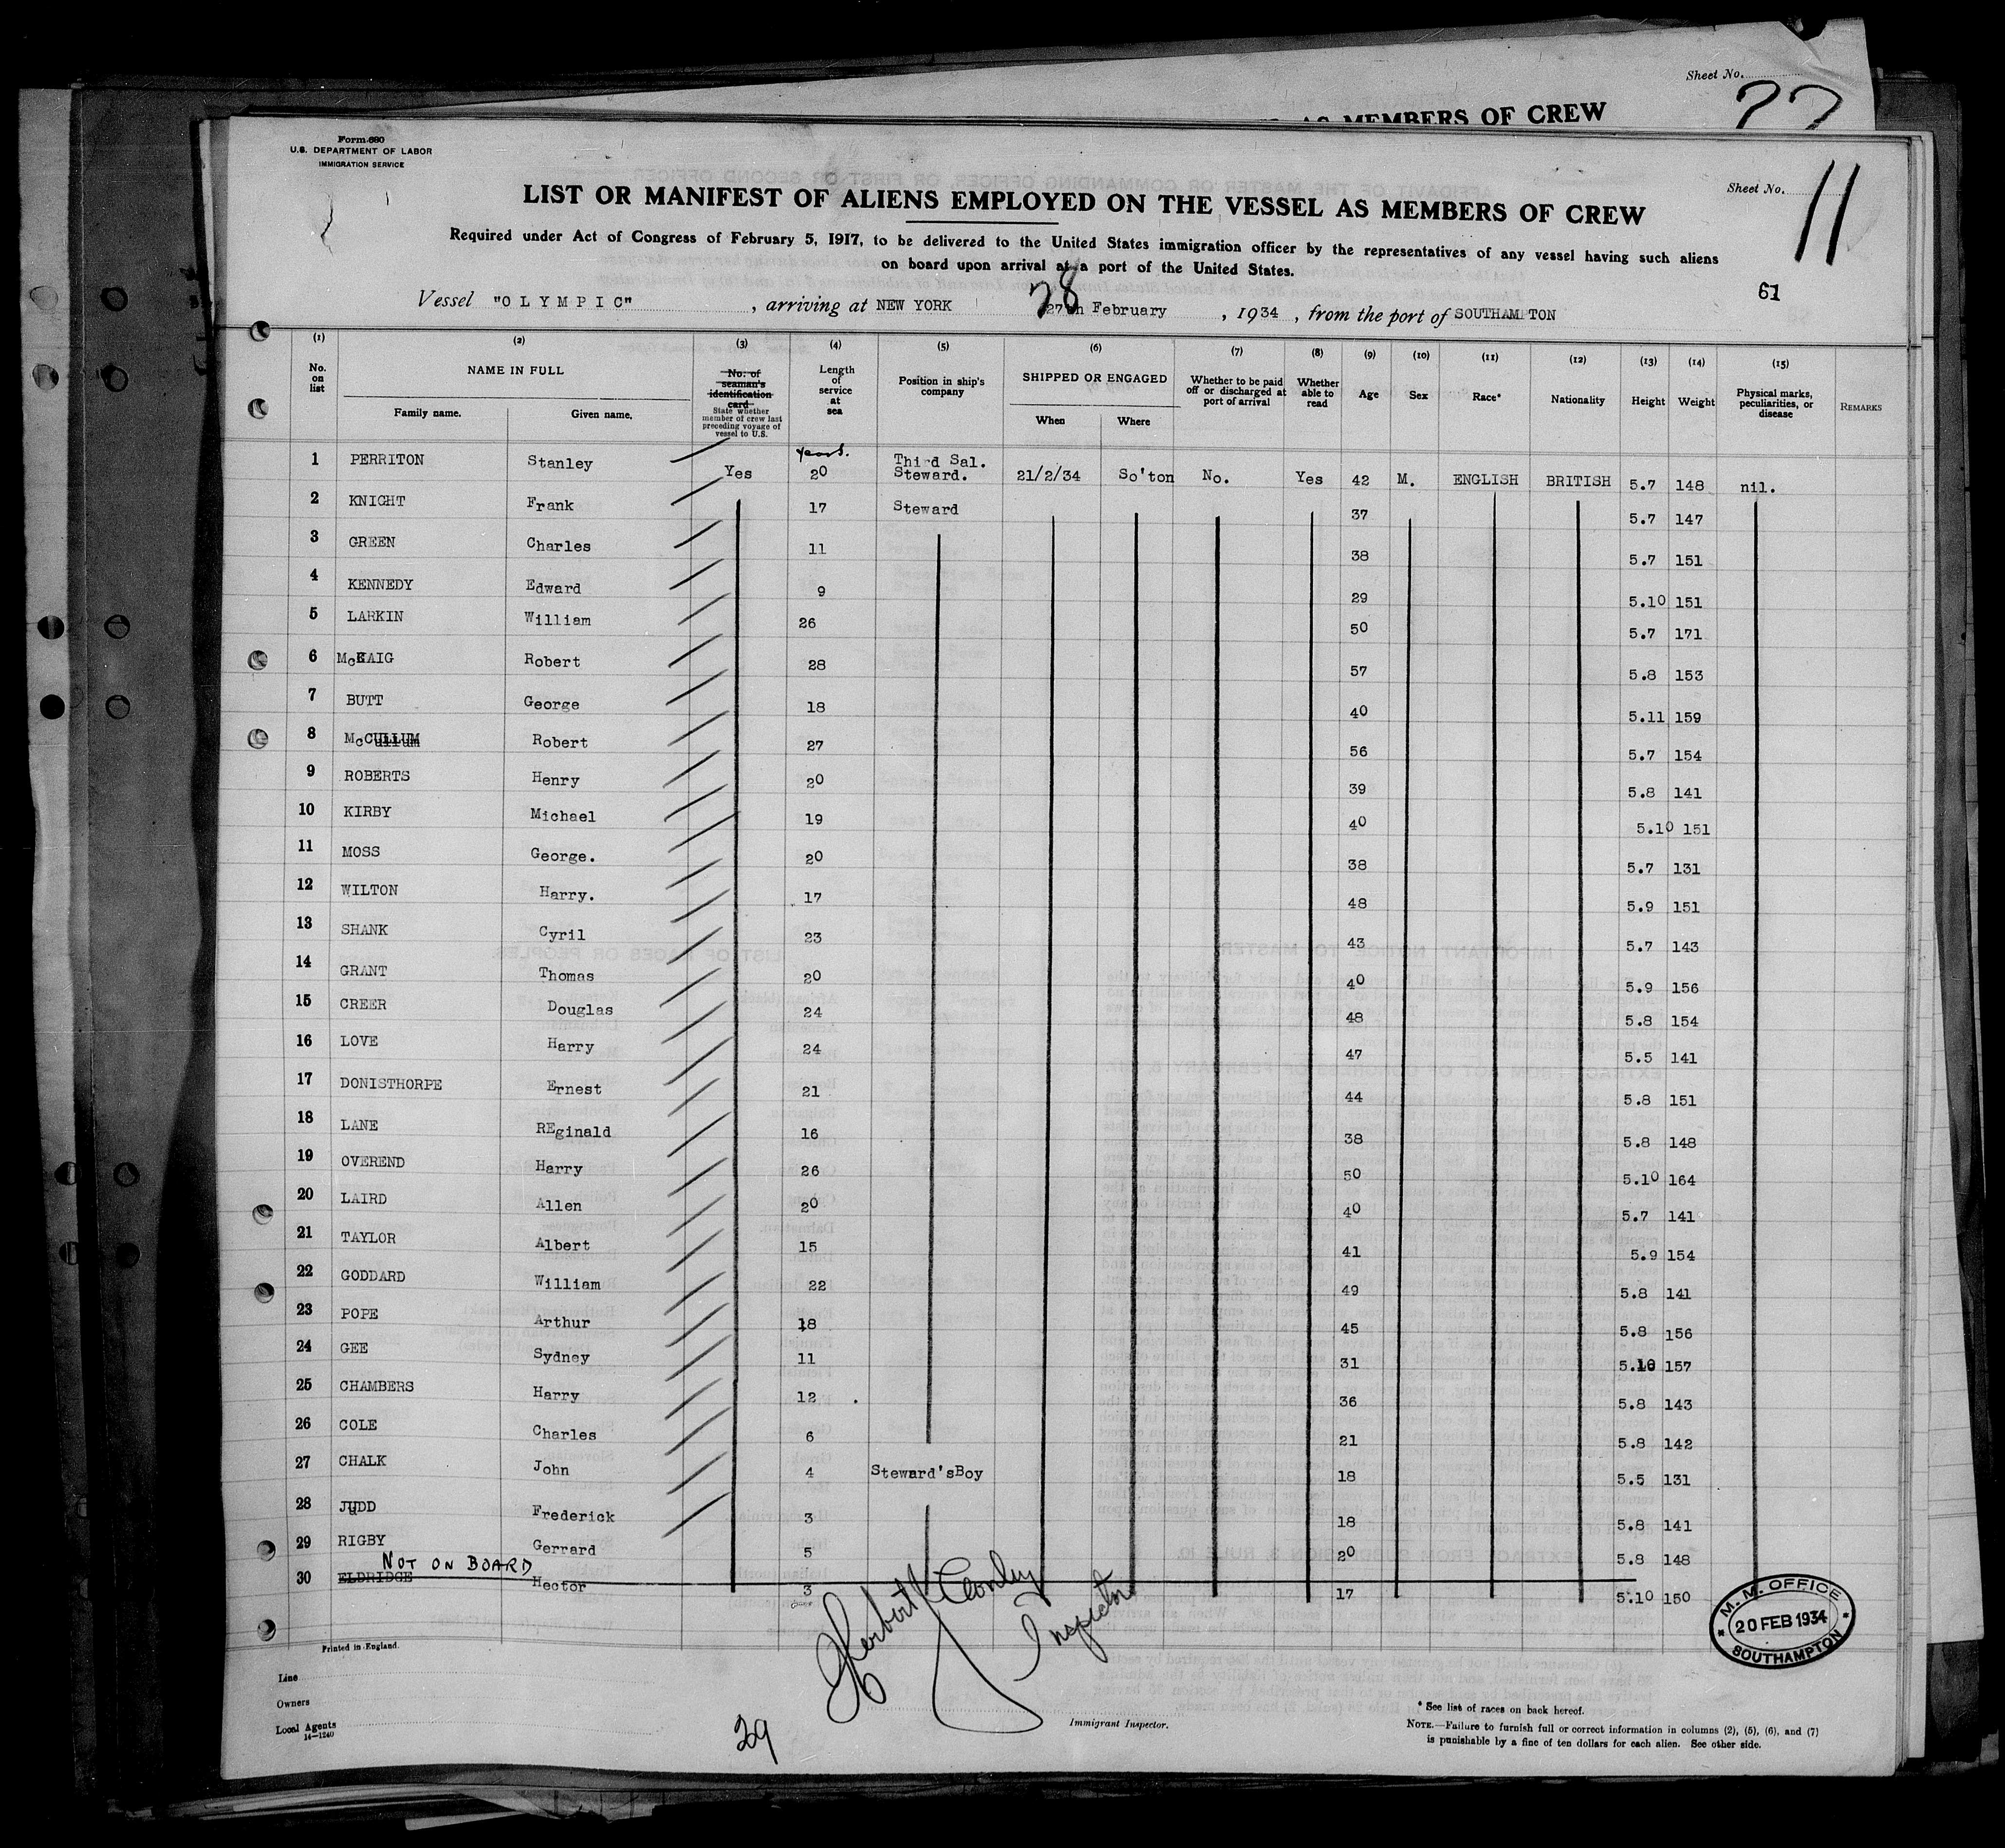 Sheet No.
AS MEMBERS OF CREW
Form 680
U.S. DEPARTMENT OF LABOR
IMMIGRATION SERVICE
Sheet No. 11
LIST OR MANIFEST OF ALIENS EMPLOYED ON THE VESSEL AS MEMBERS OF CREW
Required under Act of Congress of February 5, 1917, to be delivered to the United States immigration officer by the representatives of any vessel having such aliens
on board upon arrival at a port of the United States.
61
Vessel "OLYMPIC", arriving at NEW YORK 28 27th February, 1934, from the port of SOUTHAMPTON
(1) (2) (3) (4) (5) (6) (7) (8) (9) (10) (11) (12) (13) (14) (15)
No. on list
NAME IN FULL
Family name. Given name.
No. of seaman's identification card
State whether member of crew last preceding voyage of vessel to U.S.
Length of service at sea
Position in ship's company
SHIPPED OR ENGAGED
When Where
Whether to be paid off or discharged at port of arrival
Whether able to read
Age
Sex
Race*
Nationality
Height
Weight
Physical marks, peculiarities, or disease
REMARKS
years.
1 PERRITON Stanley Yes 20 Third Sal. Steward. 21/2/34 So'ton No. Yes 42 M. ENGLISH BRITISH 5.7 148 nil.
2 KNIGHT Frank 17 Steward 37 5.7 147
3 GREEN Charles 11 38 5.7 151
4 KENNEDY Edward 9 29 5.10 151
5 LARKIN William 26 50 5.7 171
6 McKAIG Robert 28 57 5.8 153
7 BUTT George 18 40 5.11 159
8 McCULLUM Robert 27 56 5.7 154
9 ROBERTS Henry 20 39 5.8 141
10 KIRBY Michael 19 40 5.10 151
11 MOSS George. 20 38 5.7 131
12 WILTON Harry. 17 48 5.9 151
13 SHANK Cyril 23 43 5.7 143
14 GRANT Thomas 20 40 5.9 156
15 CREER Douglas 24 48 5.8 154
16 LOVE Harry 24 47 5.5 141
17 DONISTHORPE Ernest 21 44 5.8 151
18 LANE REginald 16 38 5.8 148
19 OVEREND Harry 26 50 5.10 164
20 LAIRD Allen 20 40 5.7 141
21 TAYLOR Albert 15 41 5.9 154
22 GODDARD William 22 49 5.8 141
23 POPE Arthur 18 45 5.8 156
24 GEE Sydney 11 31 5.10 157
25 CHAMBERS Harry 12 36 5.8 143
26 COLE Charles 6 21 5.8 142
27 CHALK John 4 Steward'sBoy 18 5.5 131
28 JUDD Frederick 3 18 5.8 141
29 RIGBY Gerrard 5 20 5.8 148
NOT ON BOARD
30 ELDRIDGE Hector 3 17 5.10 150
Inspector
M. M. OFFICE
* 20 FEB 1934 *
SOUTHAMPTON
Printed in England.
Line
Owners
Local Agents
14-1240
29
Immigrant Inspector.
* See list of races on back hereof.
NOTE.—Failure to furnish full or correct information in columns (2), (5), (6), and (7)
is punishable by a fine of ten dollars for each alien. See other side.